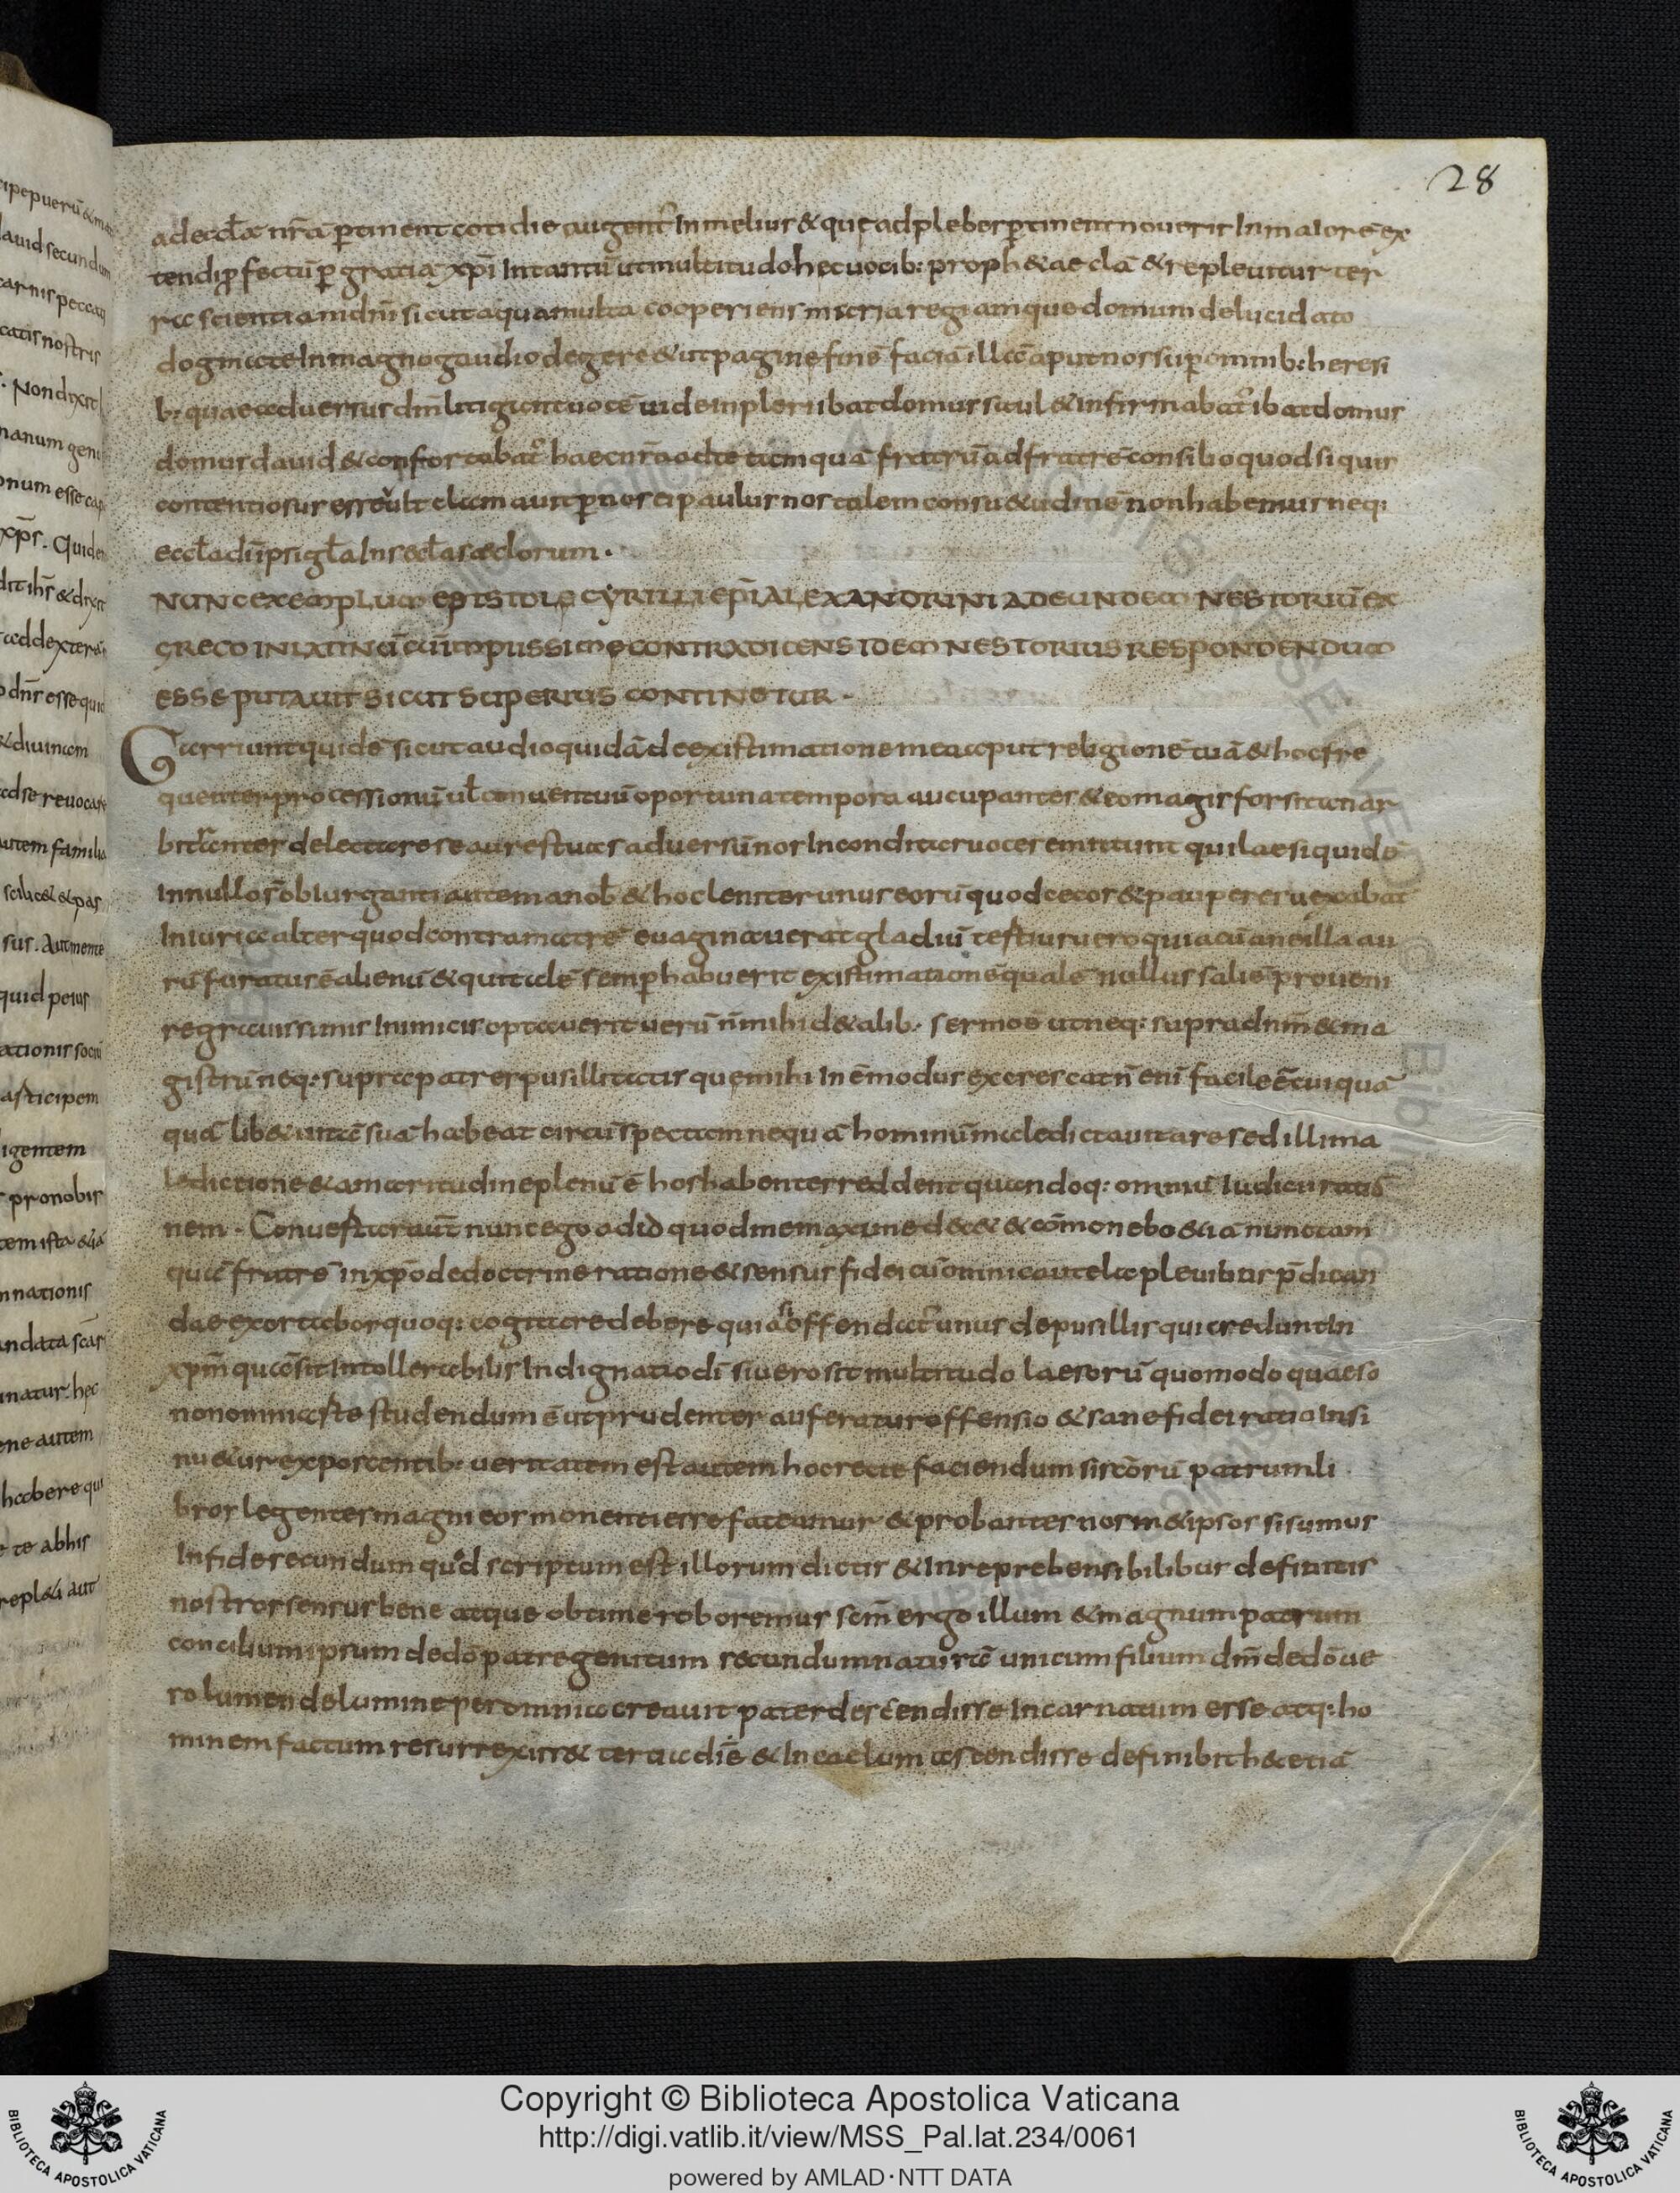 28
ad eccła nr̄a ꝑtinent cotidie augent᷑ In melius & que ad plebes ꝑtinent noueris In maiorē ex
tendi ꝓfectū ꝑ gratiā xp̄i In tantū ut multitudo hec uocib: proph&ae clā & repleuitur ter
rae scientiam dn̄i sicut aqua multa cooperiens maria regiamque domum delucidato
dogmate In magno gaudio degere & ut pagine finē faciā illa aput nos suꝑ omnib: heresi
b: quae aduersus dn̄m litigant uocē uidem pleri ibat domus saul & infirmabat᷑ ibat domus
domus dauid & confortabat᷑ haec nr̄a ad te tam quā fratrū ad fratrē consilio quod si quis
contentiosus esse uult clam auit ꝑ nos ei paulus nos talem consu&udinē non habemus neq:
eccła dī ipsi głа In secła saeclorum.
NUNC EXEMPLUM EPISTOLE CYRILLI EPĪ ALEXANDRINI AD EUNDEM NESTORIŪ EX
GRECO IN LATINŪ CUI IMPIISSIME CONTRADICENS IDEM NESTORIUS RESPONDENDUM
ESSE PUTAUIT SICUT SUPERIUS CONTINETUR.
Garriunt quidē sicut audio quidā de existimatione mea aput religionē tuā & hoc fre
quenter processionū uł conuentuū oportuna tempora aucupantes & eo magis forsitan ar
bitrantes delectare se aures tuas aduersū nos Inconditas uoces emittunt qui laesi quidē
In nullo s̄ obiurganti autem a nob̄ & hoc leniter unus eorū quod cecos & pauperes uexabat
Iniuria alter quod contra matrē euaginauerat gladiū tertius uero quia cū ancilla au
rū furatus ē alienū & qui talē semꝑ habuerit existimationē qualē nullus saltē proueni
re grauissimis Inimicis optauerit uerū n̄ mihi d& alib: sermo ē ut neq: supra dn̄m & ma
gistrū neq: supra patres pusillitatis que mihi In ē modus excrescat n̄ enī facile ē cuiquā
quā lib& uitā suā habeat circūspectam nequā hominū maledicta uitare sed illi ma
ledictione & amaritudine plenū ē hos habentes reddent quandoq: omniū Iudicii ratio
nem. Conuertar aut̄ nunc ego ad id quod me maxime d&& & cōmonebo & iā nunc tam
quā fratrē in xp̄o de doctrine ratione & sensus fidei cū omni cautela plebibus p̄dican
dae exortabor quoq: cogitare debere quia si offendat᷑ unus de pusillis qui credunt In
xp̄m quā sit Intollerabilis Indignatio dī si uero sit multitudo laesorū quomodo quaeso
non omni arte studendum ē ut prudenter auferatur offensio & sane fidei ratio Insi
nu&ur exposcentib: ueritatem est autem hoc recte faciendum si scōrū patrum li
bros legentes magni eos monenti esse fateamur & probantes nosm&ipsos si sumus
In fide secundum quod scriptum est illorum dictis & Inreprehensibilibus definitis
nostros sensus bene atque obtime roboremus scm̄ ergo illum & magnum patrum
concilium ipsum de dō patre genitum secundum naturā unicum filium dn̄m de dō ue
ro lumen de lumine per omnia creauit pater descendisse Incarnatum esse atq: ho
minem factum resurrexiss& tertia diē & In caelum ascendisse definibit h& etiā
Copyright © Biblioteca Apostolica Vaticana
http://digi.vatlib.it/view/MSS_Pal.lat.234/0061
powered by AMLAD·NTT DATA
BIBLIOTECA APOSTOLICA VATICANA
BIBLIOTECA APOSTOLICA VATICANA